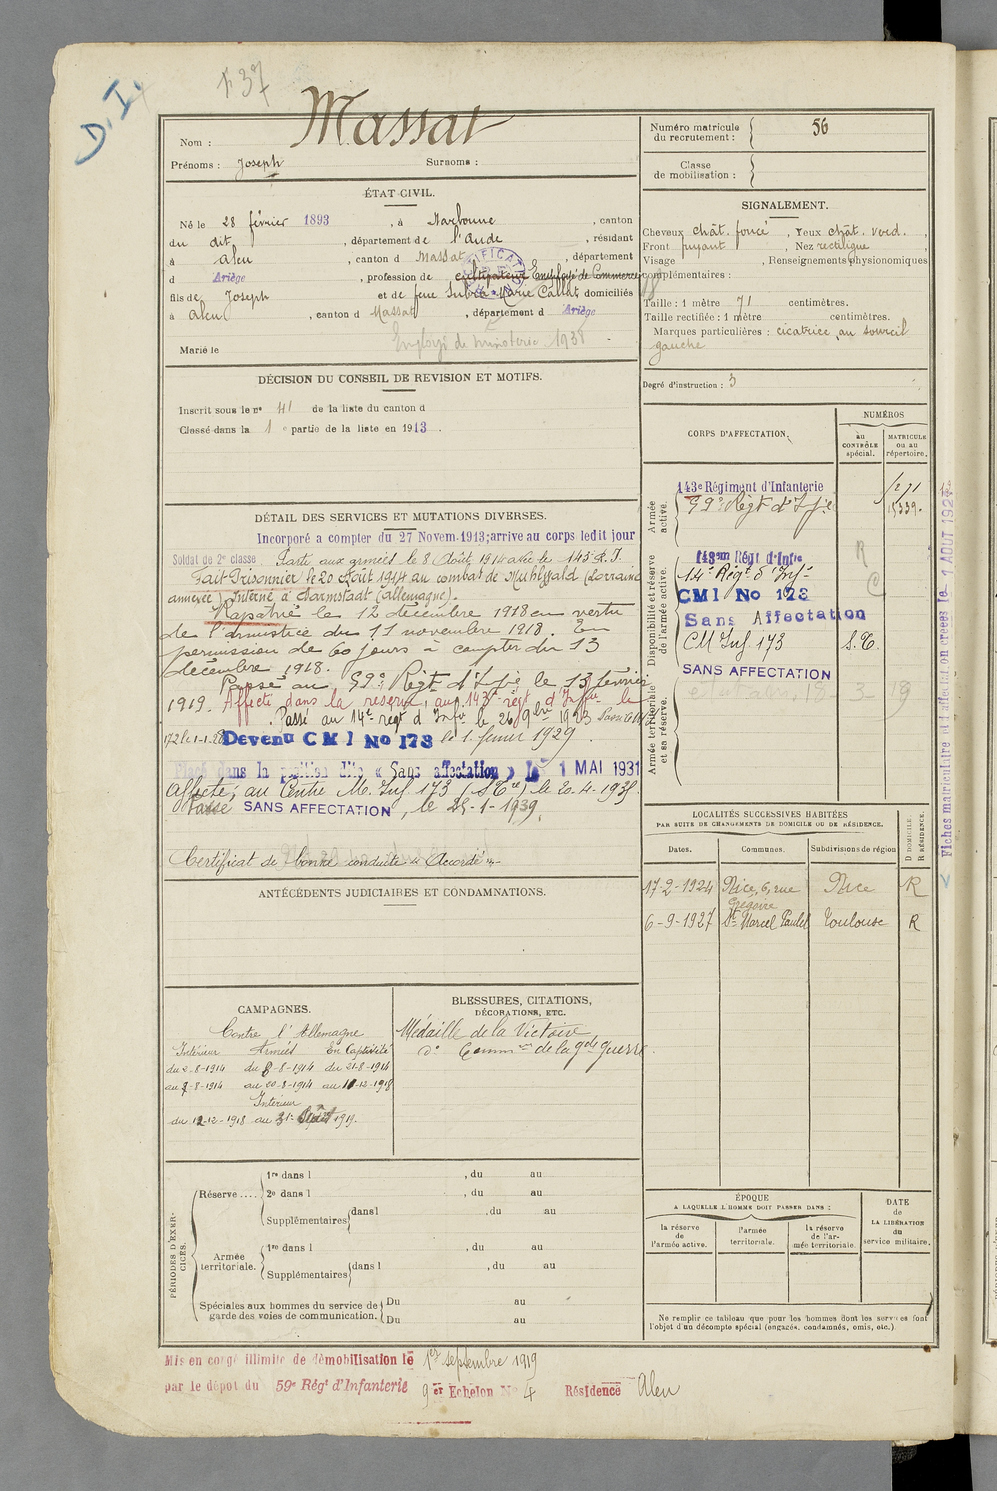 D.I.
137
Nom : Massat
Prénoms : Joseph Surnoms :
Numéro matricule du recrutement : 56
Classe de mobilisation :
ÉTAT CIVIL.
Né le 28 février 1893, à Narbonne, canton
du dit, département de l'Aude, résidant
à Aleu, canton d Massat, département
d Ariège, profession de cultivateur Employé de Commerce
fils de Joseph et de feue Marie Callat, domiciliés
à Aleu, canton d Massat, département d Ariège
Employé de minoterie 1938
Marié le
SIGNALEMENT.
Cheveux chât. foncé, Yeux chât. verd.
Front fuyant, Nez rectiligne
Visage , Renseignements physionomiques
complémentaires :
Taille : 1 mètre 71 centimètres.
Taille rectifiée : 1 mètre centimètres.
Marques particulières : cicatrice au sourcil
gauche
Degré d'instruction : 3
DÉCISION DU CONSEIL DE REVISION ET MOTIFS.
Inscrit sous le n° 41 de la liste du canton d
Classé dans la 1 e partie de la liste en 1913.
DÉTAIL DES SERVICES ET MUTATIONS DIVERSES.
Incorporé a compter du 27 Novem. 1913; arrive au corps ledit jour
Soldat de 2e classe. Parti aux armées le 8 Août 1914 avec le 143 R.I.
Fait Prisonnier le 20 Août 1914 au combat de (Lorraine
annexée) Interné à Darmstadt (Allemagne).
Rapatrié le 12 décembre 1918 en vertu
de l'armistice du 11 novembre 1918. En
permission de 60 jours à compter du 13
décembre 1918.
Passé au 59e Régt d'Infie le 13 février
1919. Affecté dans la réserve, au 143e régt d'Infie le
Passé au 14e régt d'Infie le 26 9bre 1923
Devenu CMI No 173 le 1 février 1929.
Placé dans la position dite « Sans affectation » le 1 MAI 1931
Affecté, au Centre M. Inf. 173 le 20-4-
Passé SANS AFFECTATION, le 25-1-1939.
Certificat de bonne conduite "Accordé"
ANTÉCÉDENTS JUDICIAIRES ET CONDAMNATIONS.
CORPS D'AFFECTATION.
NUMÉROS
au CONTRÔLE spécial.
MATRICULE ou au répertoire.
Armée active.
143e Régiment d'Infanterie
59e Régt d'Infie
Disponibilité et réserve de l'armée active.
143em Régt d'Infie
14e Régt d'Infie
CMI No 173
Sans Affectation
CM Inf. 173
SANS AFFECTATION
Armée territoriale et sa réserve.
Fiches matriculaire et d'affectation créées le 1 AOUT 1927
LOCALITÉS SUCCESSIVES HABITÉES
PAR SUITE DE CHANGEMENTS DE DOMICILE OU DE RÉSIDENCE.
Dates. Communes. Subdivisions de région D DOMICILE. R RÉSIDENCE.
17-2-1924 Nice, 6, rue Nice R
6-9-1927 St Marcel Paulel Toulouse R
CAMPAGNES.
Contre l'Allemagne
Intérieur Armées En Captivité
du 2-8-1914 du 8-8-1914 du 21-8-1914
au 7-8-1914 au 20-8-1914 au 11-12-1918
Intérieur
du 12-12-1918 au 31 1919.
BLESSURES, CITATIONS,
DÉCORATIONS, ETC.
Médaille de la Victoire
d° Commve de la gde guerre.
PÉRIODES D'EXERCICES.
Réserve .... 1re dans l , du au
2e dans l , du au
Supplémentaires dans l , du au
Armée territoriale. 1re dans l , du au
Supplémentaires dans l , du au
Spéciales aux hommes du service de garde des voies de communication. Du au
Du au
ÉPOQUE
A LAQUELLE L'HOMME DOIT PASSER DANS :
la réserve de l'armée active.
l'armée territoriale.
la réserve de l'armée territoriale.
DATE de LA LIBÉRATION du service militaire.
Ne remplir ce tableau que pour les hommes dont les services font
l'objet d'un décompte spécial (engagés, condamnés, omis, etc.).
Mis en congé illimité de démobilisation le 1er septembre 1919
par le dépot du 59e Régt d'Infanterie 9e Echelon No 4 Résidence Aleu